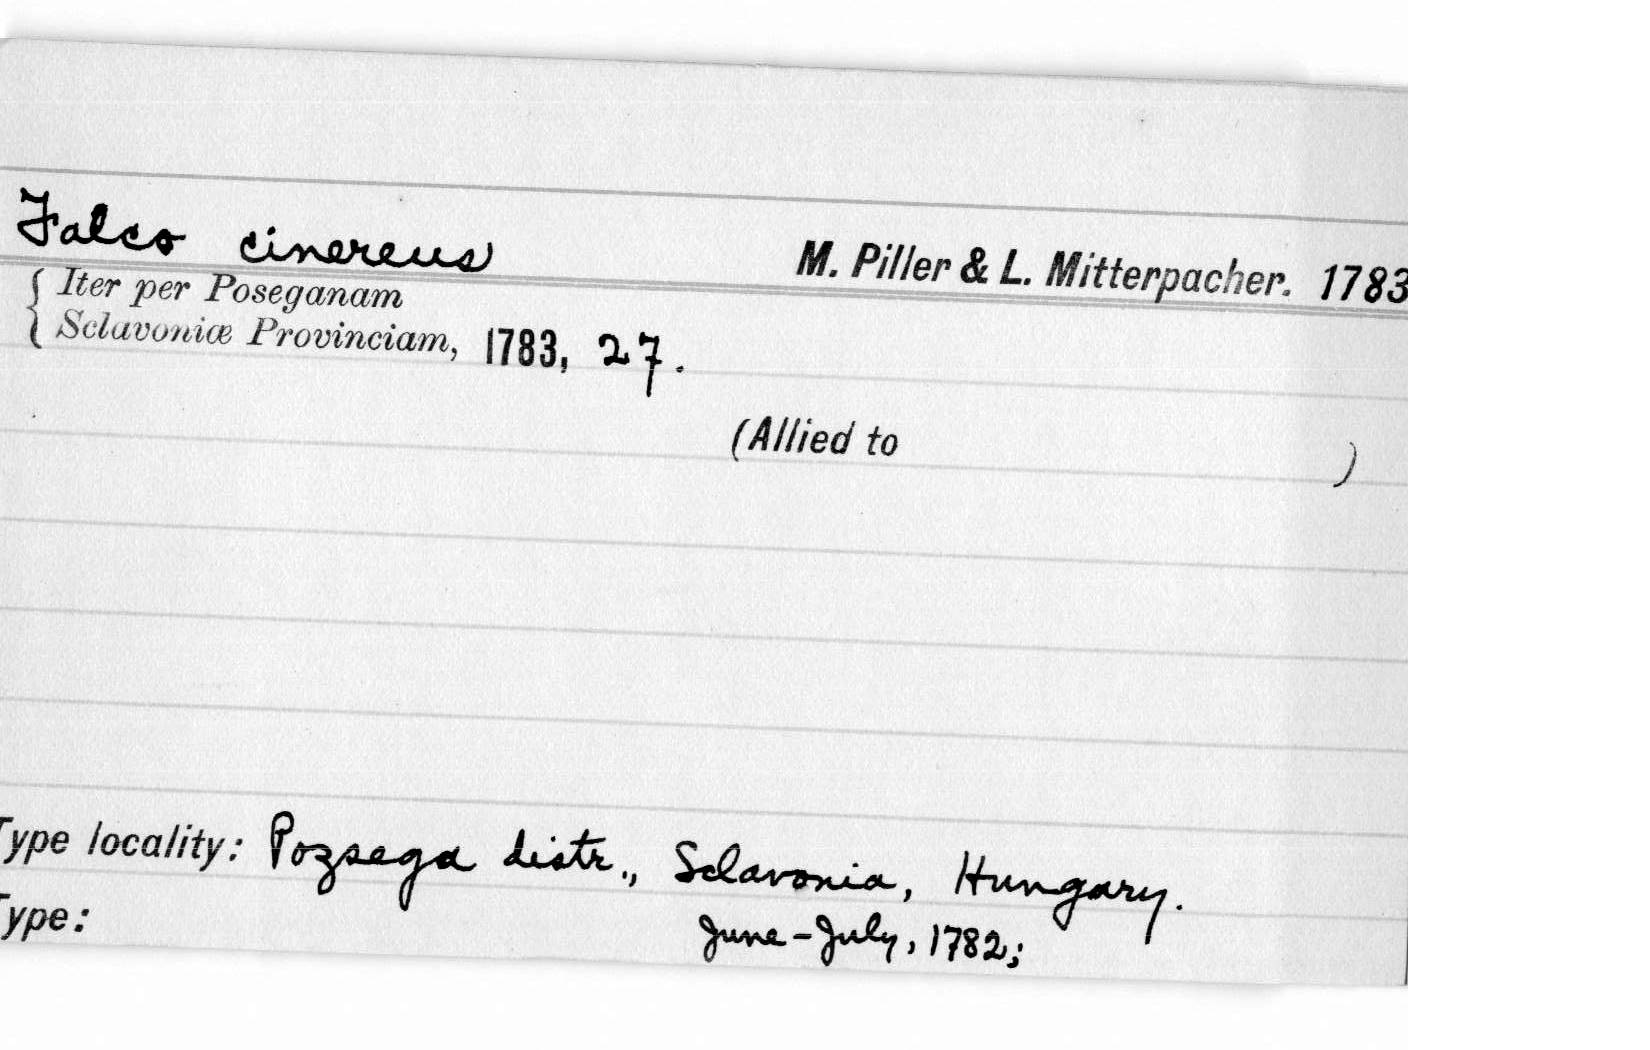 Falco cinereus M. Piller & L. Mitterpacher. 1783
Iter per Poseganam
Sclavoniæ Provinciam, 1783, 27.
(Allied to )
Type locality: Pozsega distr., Sclavonia, Hungary.
Type: June-July, 1782;